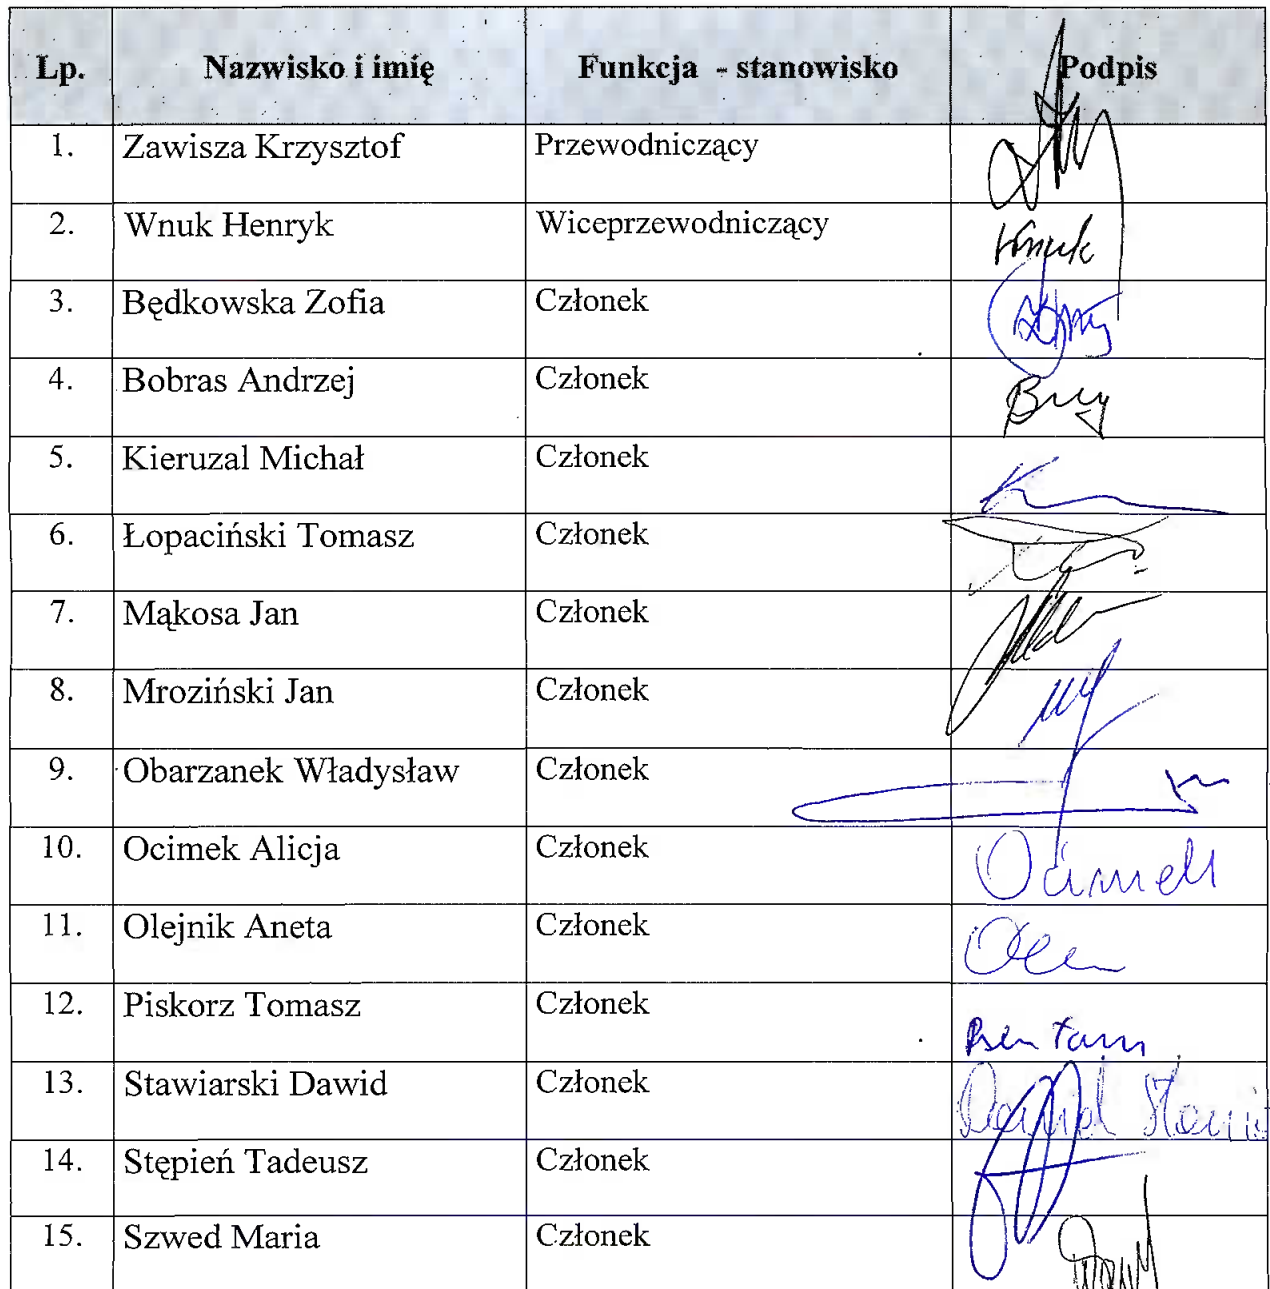 Lp. Nazwisko i imię Funkcja - stanowisko Podpis
1. Zawisza Krzysztof Przewodniczący
2. Wnuk Henryk Wiceprzewodniczący Wnuk
3. Będkowska Zofia Członek
4. Bobras Andrzej Członek
5. Kieruzal Michał Członek
6. Łopaciński Tomasz Członek
7. Mąkosa Jan Członek
8. Mroziński Jan Członek
9. Obarzanek Władysław Członek
10. Ocimek Alicja Członek Ocimek
11. Olejnik Aneta Członek
12. Piskorz Tomasz Członek
13. Stawiarski Dawid Członek Dawid
14. Stępień Tadeusz Członek
15. Szwed Maria Członek